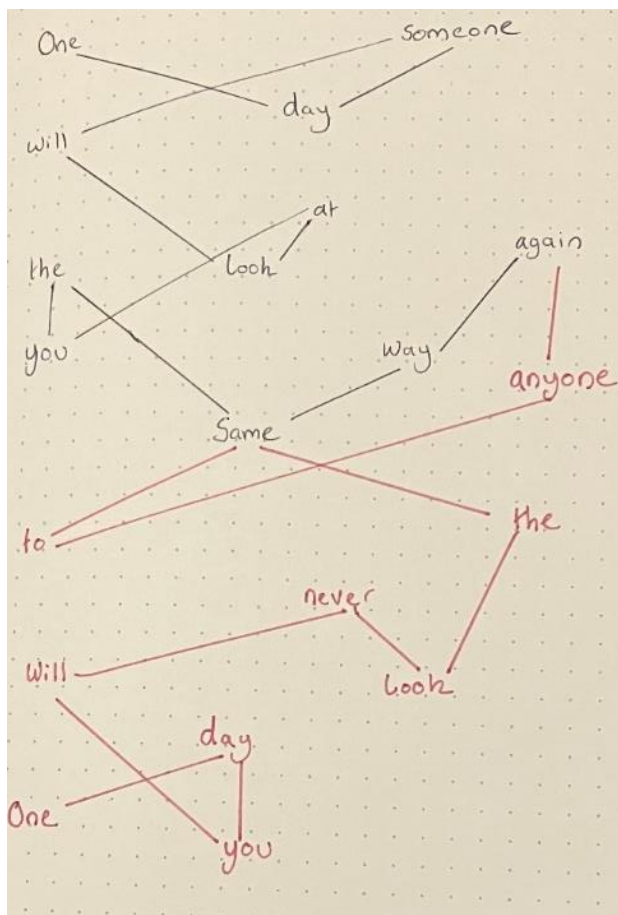 One someone
day
will
at
again
the Look
you way
anyone
Same
to the
never
will Look
day
One
you